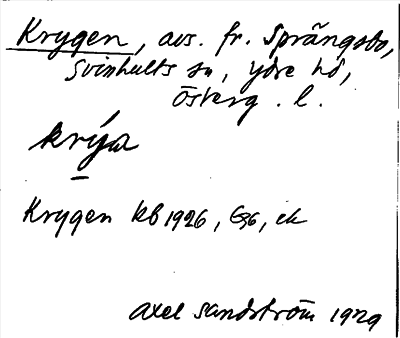 Krygen, avs. fr. Sprängsbo,
Svinhults sn, Ydre hd,
Österg. l.
krýa
Krygen kb 1926, Gsg, ek
Axel Sandström 1929